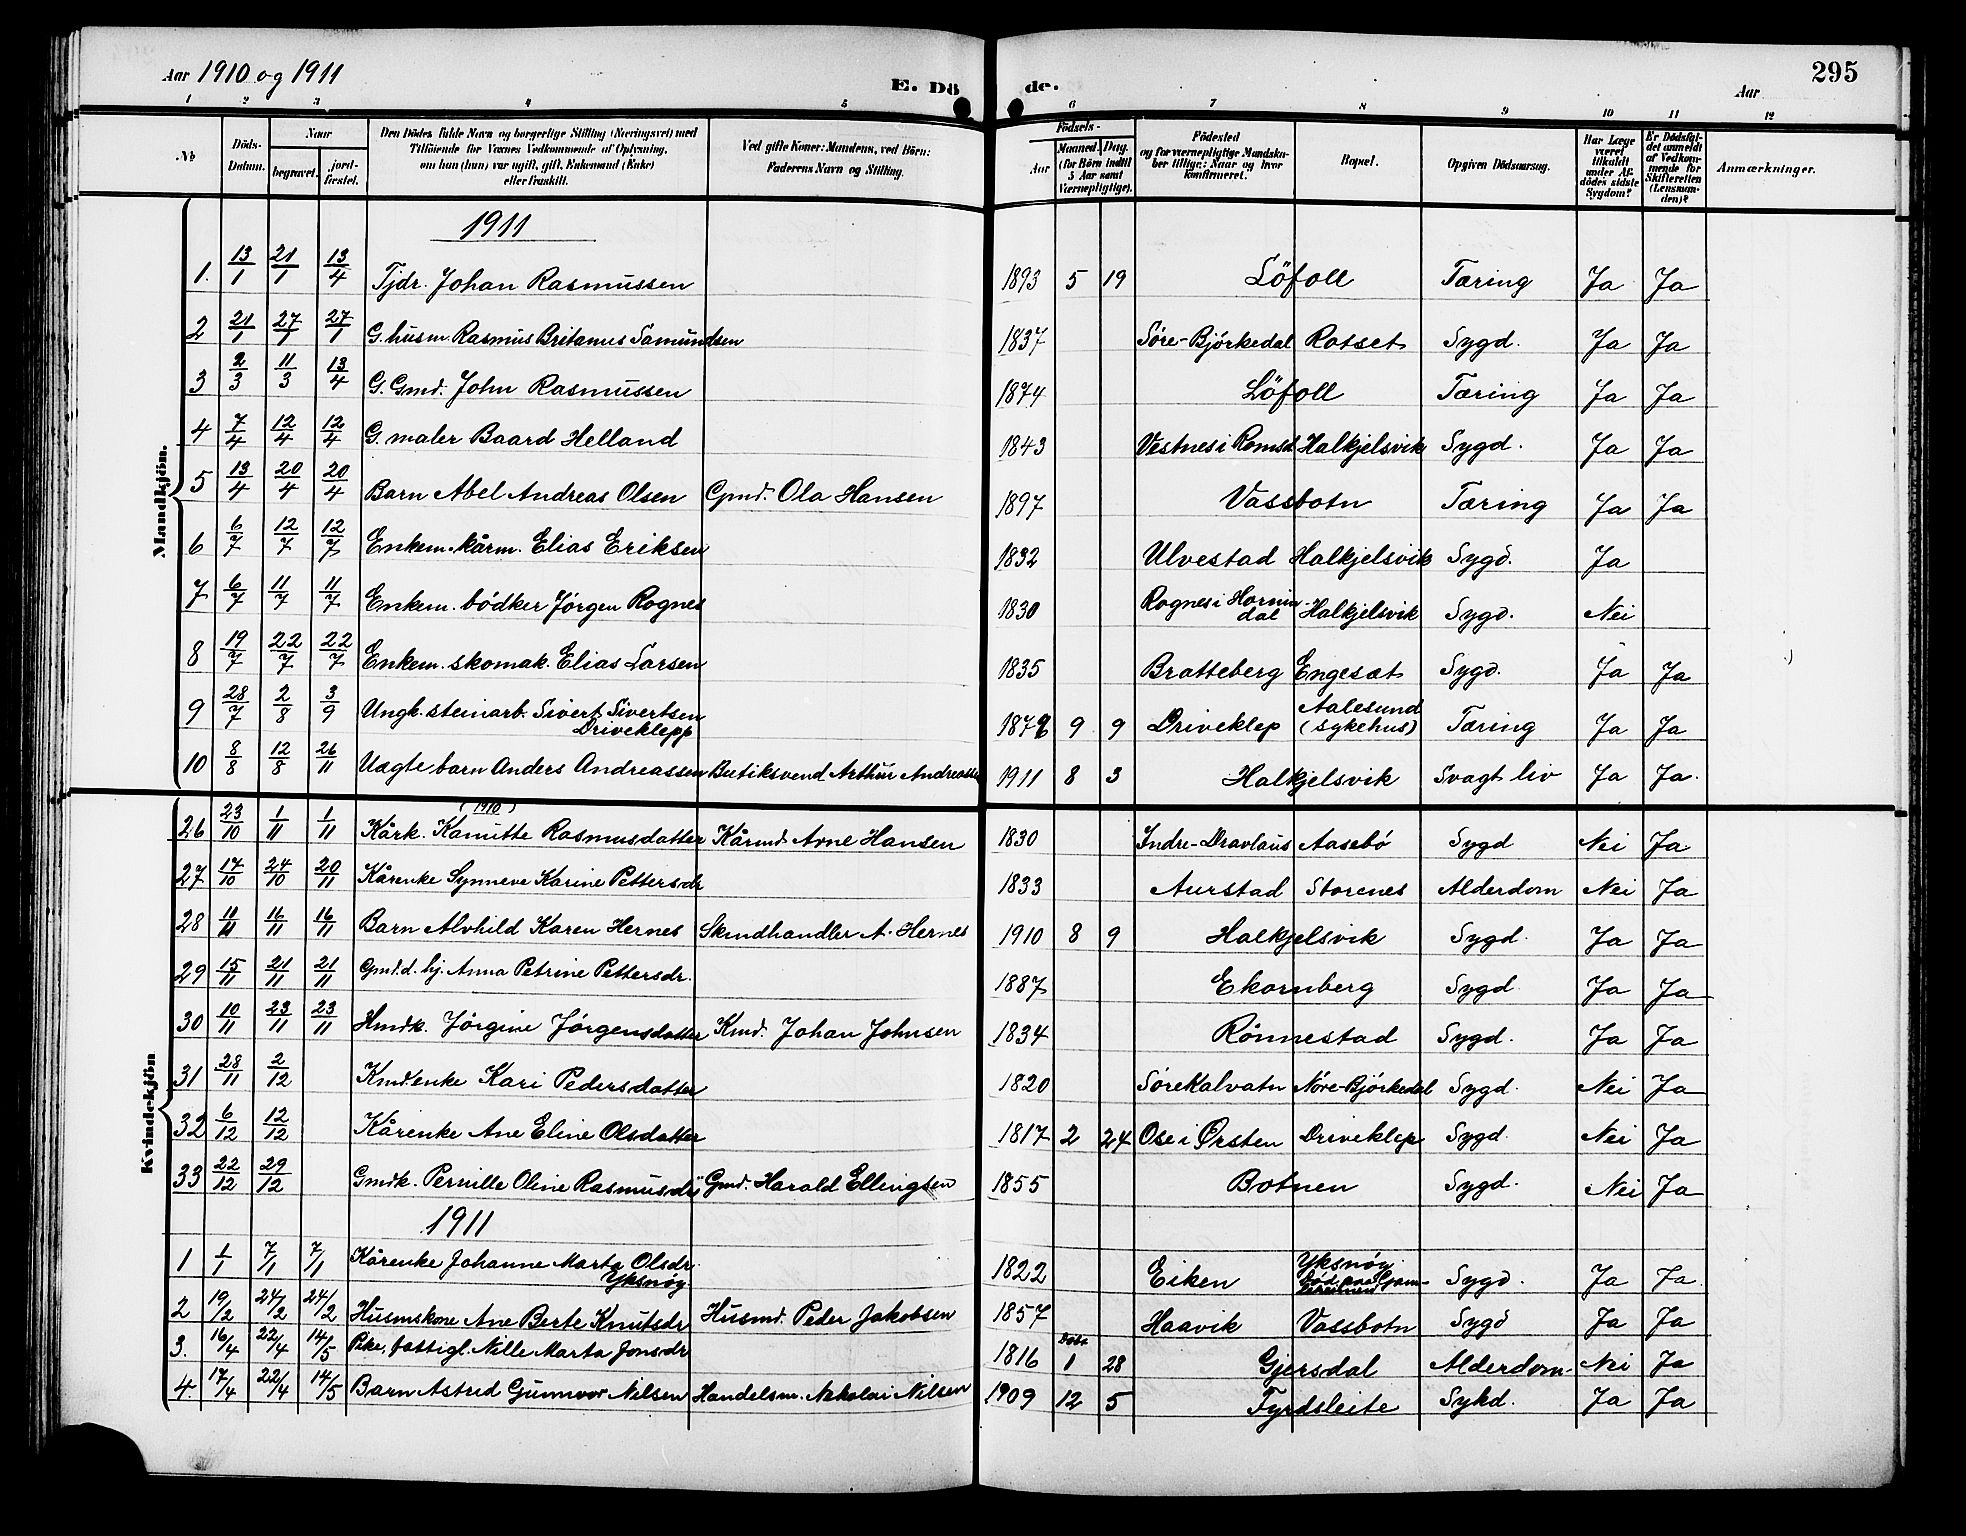 Aar 1910 og 1911 E. Dö de. Aar 295
1 2 3 4 5 6 7 8 9 10 11 12
No
Döds-Datum.
Naar
begravet.
jord-fæstet.
Den Dödes fulde Navn og borgerlige Stilling (Næringsvei) med
Tilföiende for Voxnes Vedkommende af Oplysning,
om han (hun) var ugift, gift, Enkemand (Enke)
eller fraskilt.
Ved gifte Koner: Mandens, ved Börn:
Faderens Navn og Stilling.
Födsels-
Aar
Maaned. Dag.
(for Börn indtil
5 Aar samt
Værnepligtige).
Födested
og for værnepligtige Mandska-
ber tillige: Naar og hvor
konfirmeret.
Bopæl.
Opgiven Dödsaarsag.
Har Læge
været
tilkaldt
under Af-
dödes sidste
Sygdom?
Er Dödsfal-
det anmeldt
af Vedkom-
mende for
Skifteretten
(Lensman-
den)?
Anmærkninger.
Mandkjön.
1911
1. 13/1 21/1 13/4 Tjdr. Johan Rasmussen 1893 5 19 Löfoll Tæring Ja Ja
2 21/1 27/1 27/1 G. husm. Rasmus Britanus Samundsen 1837 Søre-Bjørkedal Rotset Sygd. Ja Ja
3 2/3 11/3 13/4 G. Gmd. John Rasmussen 1874 Löfoll Tæring Ja Ja
4 7/4 12/4 12/4 G. maler Baard Helland 1843 Vestnes i Romsd. Halkjelsvik Sygd. Ja Ja
5 13/4 20/4 20/4 Barn Abel Andreas Olsen Gmd. Ola Hansen 1897 Vassbotn Tæring Ja Ja
6 6/7 12/7 12/7 Enkem. kårm. Elias Eriksen 1832 Ulvestad Halkjelsvik Sygd. Ja
7 6/7 11/7 11/7 Enkem. bødker Jørgen Rognes 1830 Rognes i Hornin-
dal Halkjelsvik Sygd. Nei
8 19/7 22/7 22/7 Enkem. skomak. Elias Larsen 1835 Bratteberg Engeset Sygd. Ja Ja
9 28/7 2/8 3/9 Ungk. steinarb. Sivert Sivertsen
Driveklepp 9 9 Driveklep Aalesund
(sykehus) Tæring Ja Ja
10 8/8 12/8 26/11 Uægte barn Anders Andreassen Butiksvend Arthur Andreassen 1911 8 3 Halkjelsvik Svagt liv Ja Ja.
Kvindekjön
(1910)
26 23/10 1/11 1/11 Kårk. Kanutte Rasmusdatter Kårmd. Arne Hansen 1830 Indre-Dravlaus Aasebö Sygd Nei Ja
27 17/10 24/10 20/11 Kårenke Synneve Karine Pettersdr 1833 Aurstad Storenes Alderdom Nei Ja
28 11/11 16/11 16/11 Barn Alvhild Karen Hernes Skindhandler A. Hernes 1910 8 9 Halkjelsvik Sygd. Ja Ja
29 15/11 21/11 21/11 Gmd.d. hj. Anna Petrine Pettersdr. 1887 Ekornberg Sygd Ja Ja
30 10/11 23/11 23/11 Hmdk. Jørgine Jørgensdatter Kmd. Johan Johnsen 1834 Rönnestad Sygd. Ja Ja
31 28/11 2/12 Kmd'enke Kari Pedersdatter 1820 Søre Kalvatn Nóre-Bjórkedal Sygd. Nei Ja
32 6/12 12/12 Kårenke Ane Eline Olsdatter 1817 2 24 Ose i Ørsten Driveklep Sygd. Nei Ja
33 22/12 29/12 Gmdk. Pernille Oline Rasmusdr. Gmd. Harald Ellingsen 1855 Botnen Sygd. Nei Ja
1911
1 1/1 7/1 7/1 Kårenke Johanne Marta Olsdr.
Yksnøy 1822 Eiken Yksnøy Sygd. Ja Ja.
2 19/2 24/2 24/2 Husmskone Ane Berte Knutsdr Husmd. Peder Jakobsen 1857 Haavik Vassbotn Sygd Ja Ja
3. 16/4 22/4 14/5 Pike, fattigl. Nille Marta Jonsdr 1816 1 28 Gjersdal Alderdom Nei Ja
4. 17/4 22/4 14/5 Barn Astrid Gunnvor Nilsen Handelsm. Nikolai Nilsen 1909 12 5 Fyrdsleite Sykd. Ja Ja